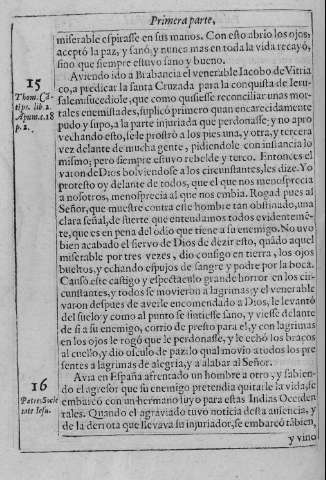 Primera parte,
miserable espirasse en sus manos. Con esto abrio los ojos,
aceptó la paz, y sanó, y nunca mas en toda la vida recayó,
sino que siempre estuvo sano y bueno.
15
Thom. Cā-
tipr. lib. 2.
Apum. c. 18
p. 2.
Aviendo ido a Brabancia el venerable Iacobo de Vitria
co, a predicar la santa Cruzada para la conquista de Ieru-
salem; sucediole, que como quisiesse reconciliar unas mor-
tales enemistades, suplicò primero quan encarecidamente
pudo y supo, a la parte injuriada que perdonasse; y no apro
vechando esto, se le prostrò a los pies una, y otra, y tercera
vez delante de mucha gente, pidiendole con instancia lo
mismo; pero siempre estuvo rebelde y terco. Entonces el
varon de Dios bolviendose a los circunstantes, les dize. Yo
protesto oy delante de todos, que el que nos menosprecia
a nosotros, menosprecia al que nos embia. Rogad pues al
Señor, que muestre contra este hombre tan obstinado, una
clara señal, de suerte que entendamos todos evidentemē-
te, que es en pena del odio que tiene a su enemigo. No uvo
bien acabado el siervo de Dios de dezir esto, quādo aquel
miserable por tres vezes, dio consigo en tierra, los ojos
bueltos, y echando espujos de sangre y podre por la boca.
Causò este castigo y espectaculo grande horror en los cir-
cunstantes, y todos se movieron a lagrimas: y el venerable
varon despues de averle encomendado a Dios, le levantó
del suelo: y como al punto se sintiesse sano, y viesse delante
de si a su enemigo, corrio de presto para el, y con lagrimas
en los ojos le rogò que le perdonasse, y le echó los braços
al cuello, y dio osculo de paz: lo qual movio a todos los pre
sentes a lagrimas de alegria, y a alabar al Señor.
16
Patres Socie
tate Iesu.
Avia en España afrentado un hombre a otro, y sabien-
do el agresor que su enemigo pretendia quitarle la vida, se
embarcò con un hermano suyo para estas Indias Occiden
tales. Quando el agraviado tuvo noticia desta ausencia, y
de la derrota que llevava su injuriador, se embarcò tābien,
y vino